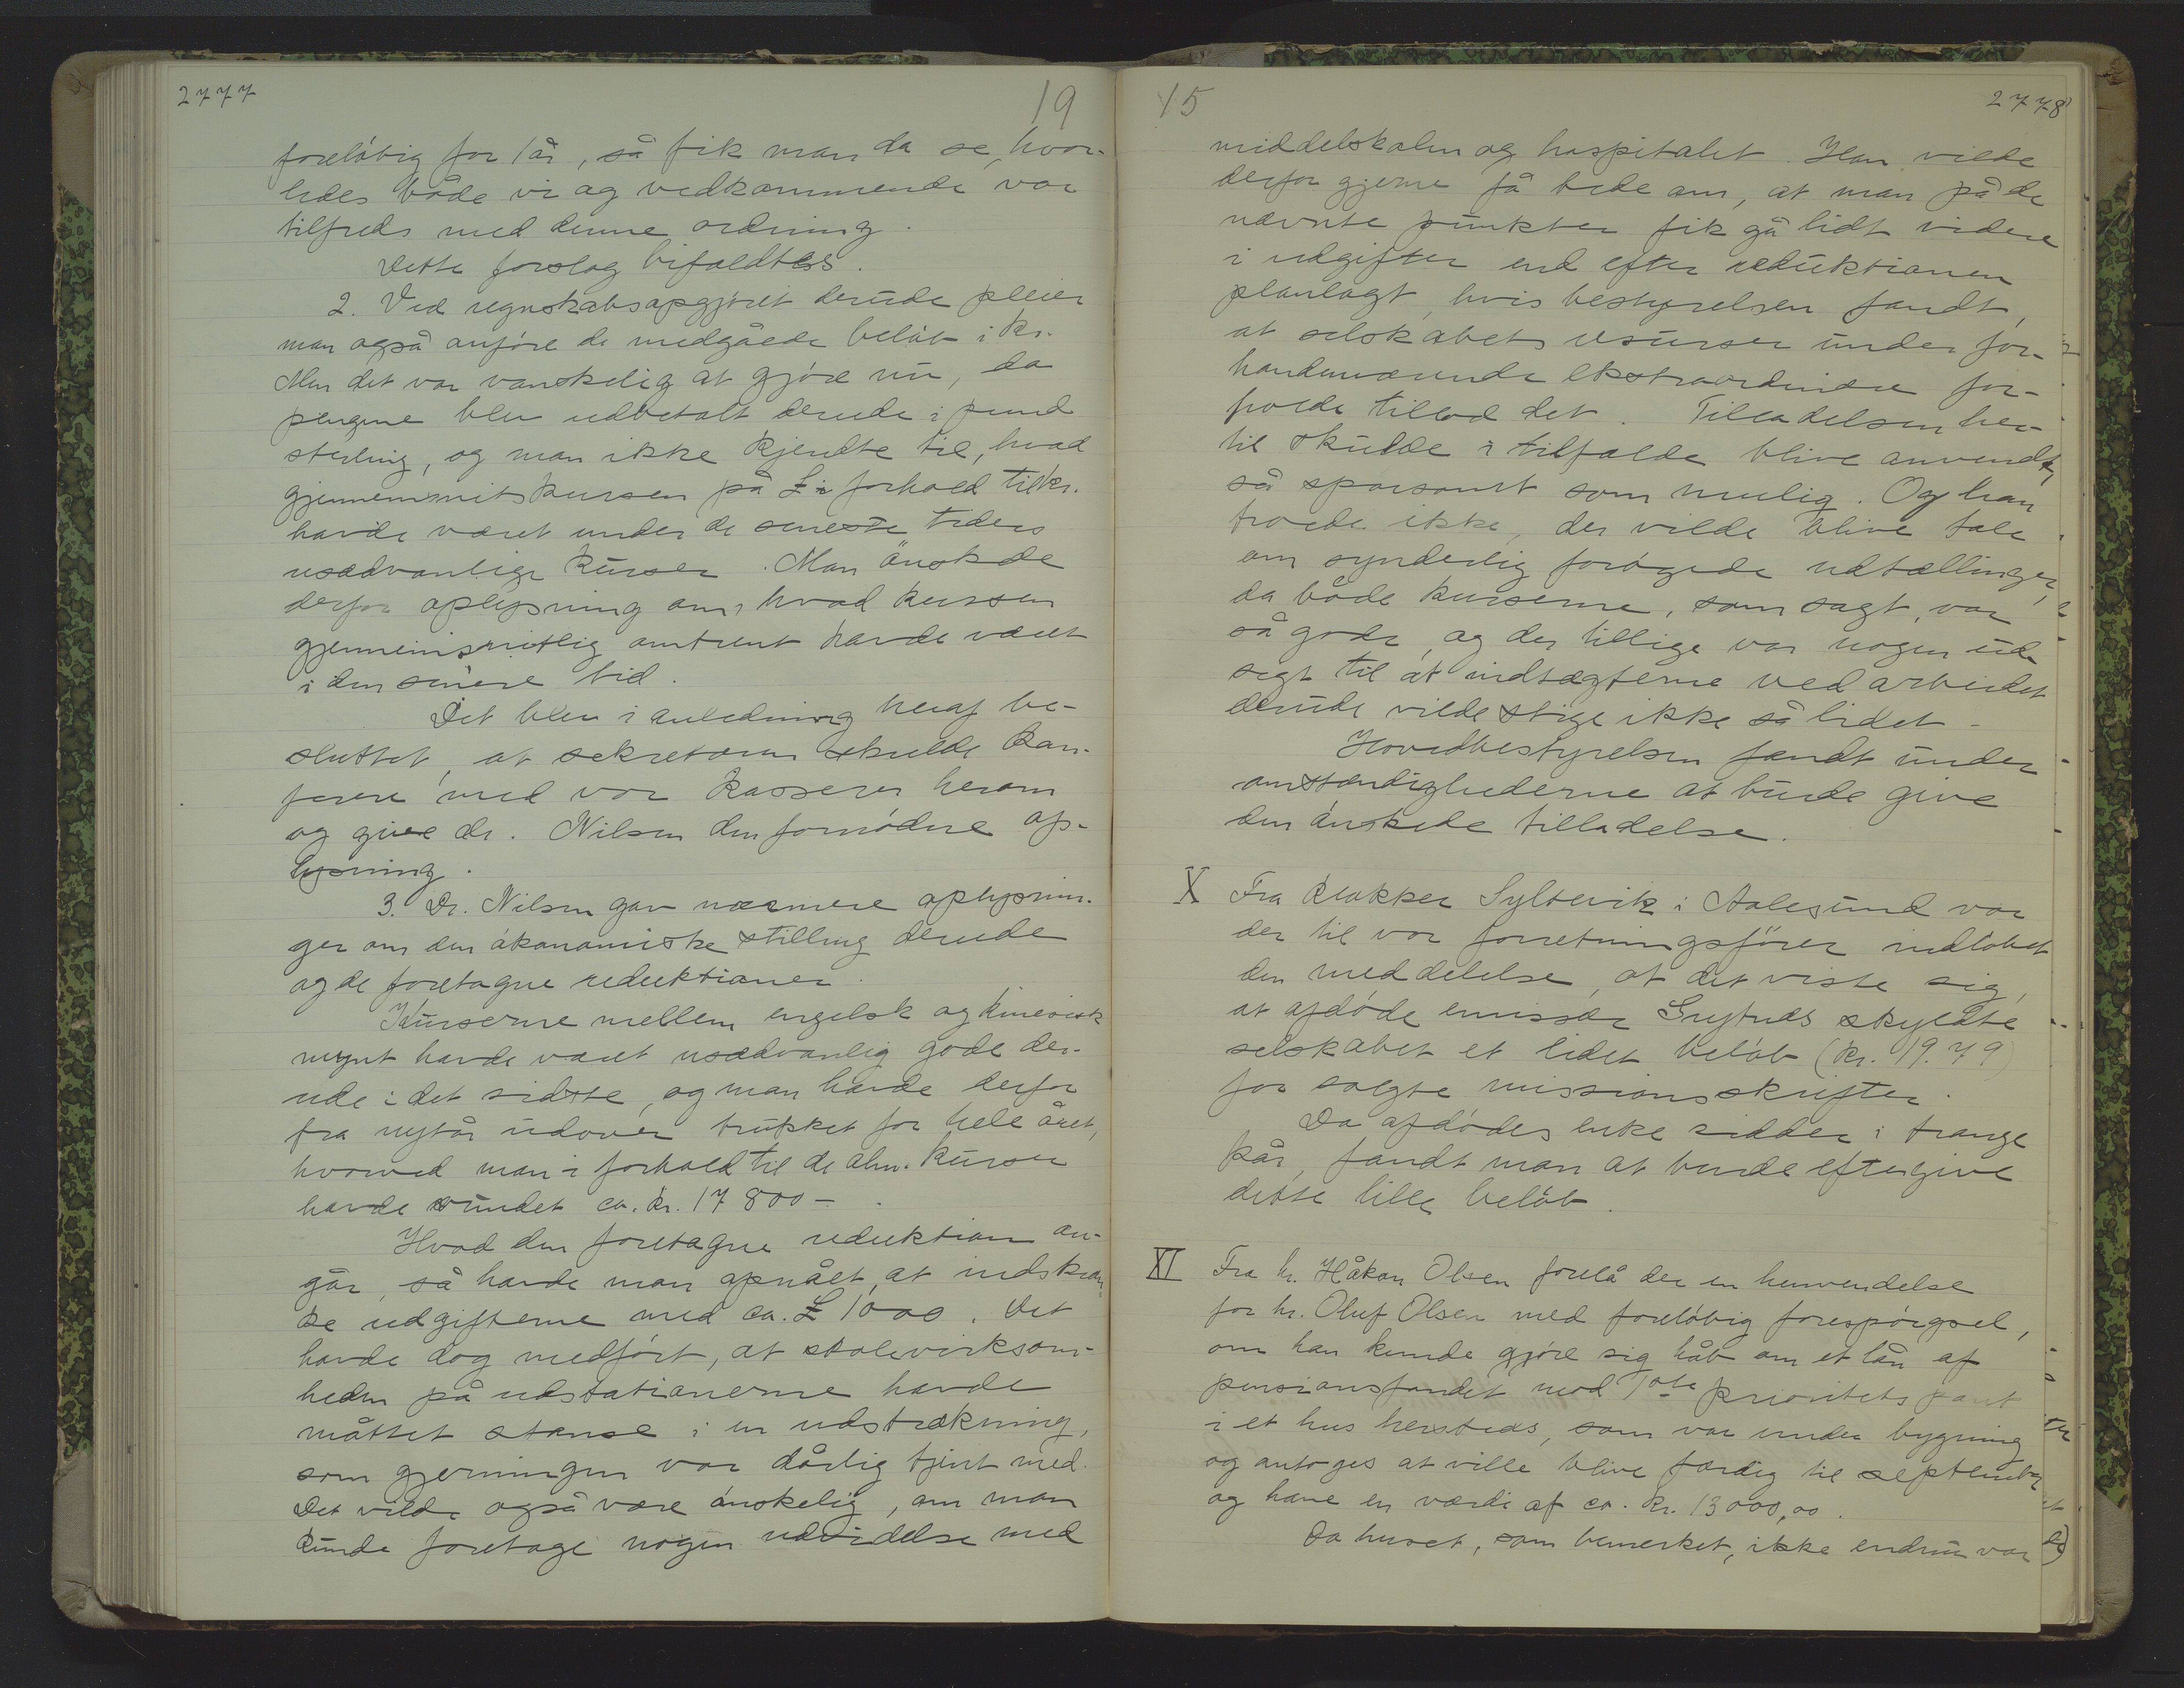 2777
19
foreløbig for 1 år, så fik man da se, hvor-
ledes både vi og vedkommende var
tilfreds med denne ordning.
Dette forslag bifaldtes.
2. Ved regnskabsopgjøret derude pleier
man også anføre de medgåede beløb i kr.
Men det var vanskelig at gjøre nu, da
pengene blev udbetalt derude i pund
sterling, og man ikke kjendte til, hvad
gjennemsnitskursen på £ i forhold til kr.
havde været under de seneste tiders
usædvanlige kurser. Man ønskede
derfor oplysning om, hvad kursen
gjennemsnitlig omtrent havde været
i den senere tid.
Det blev i anledning heraf be-
sluttet, at sekretæren skulde kon-
ferere med vor kasserer herom
og give dr. Nilsen den fornødne op-
lysning.
3. Dr. Nilsen gav nærmere oplysnin-
ger om den økonomiske stilling derude
og de foretagne reduktioner.
Kurserne mellem engelsk og kinesisk
mynt havde været usædvanlig gode der-
ude i det sidste, og man havde derfor
fra nytår udover trukket for hele året,
hvorved man i forhold til de alm. kurser
havde vundet ca. kr. 17 800 -
Hvad den foretagne reduktion an-
går, så havde man opnået, at indskræn-
ke udgifterne med ca. £ 1000. Det
havde dog medført, at skolevirksom-
heden på udstationerne havde
måttet stanse i en udstrækning,
som gjerningen var dårlig tjent med.
Det vilde også være ønskelig, om man
kunde foretage nogen udvidelse med
15
2778
middelskolen og hospitalet. Han vilde
derfor gjerne få bede om, at man på de
nævnte punkter fik gå lidt videre
i udgifter end efter reduktionen
planlagt, hvis bestyrelsen fandt,
at selskabets resurser under for-
håndenværende ekstraordinære for-
holde tillod det. Tilladelsen her-
til skulde i tilfælde blive anvendt
så sparsomt som mulig. Og han
troede ikke, der vilde blive tale
om synderlig forøgede udtællinger,
da både kurserne, som sagt, var
så gode, og der tillige var nogen ud-
sigt til at indtægterne ved arbeidet
derude vilde stige ikke så lidet -
Hovedbestyrelsen fandt under
omstændighederne at burde give
den ønskede tilladelse.
X Fra klokker Syltevik i Aalesund var
der til vor forretningsfører indløbet
den meddelelse, at det viste sig,
at afdøde emissær Grytnes skyldte
selskabet et lidet beløb (kr. 19.79)
for solgte missionsskrifter.
Da afdødes enke sidder i trange
kår, fandt man at burde eftergive
dette lille beløb.
XI Fra hr. Håkon Olsen forelå der en henvendelse
for hr. Oluf Olsen med foreløbig forespørgsel,
om han kunde gjøre sig håb om et lån af
pensionsfondet mod 1ste prioritets pant
i et hus hersteds, som var under bygning
og antoges at ville blive færdig til september
og have en værdi af ca. kr. 13000,00.
Da huset, som bemerket, ikke endnu var